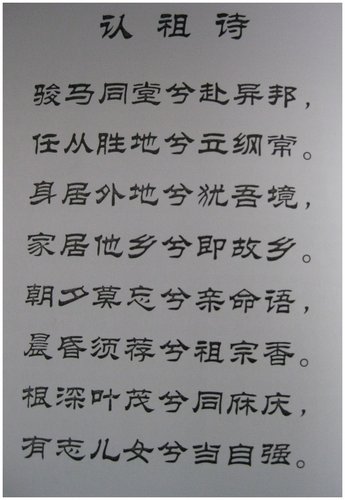 认祖诗
骏马同堂兮赴异邦，
任从胜地兮立纲常。
身居外地兮犹吾境，
家居他乡兮即故乡。
朝夕莫忘兮亲命语，
晨昏须荐兮祖宗香。
根深叶茂兮同庥庆，
有志儿女兮当自强。